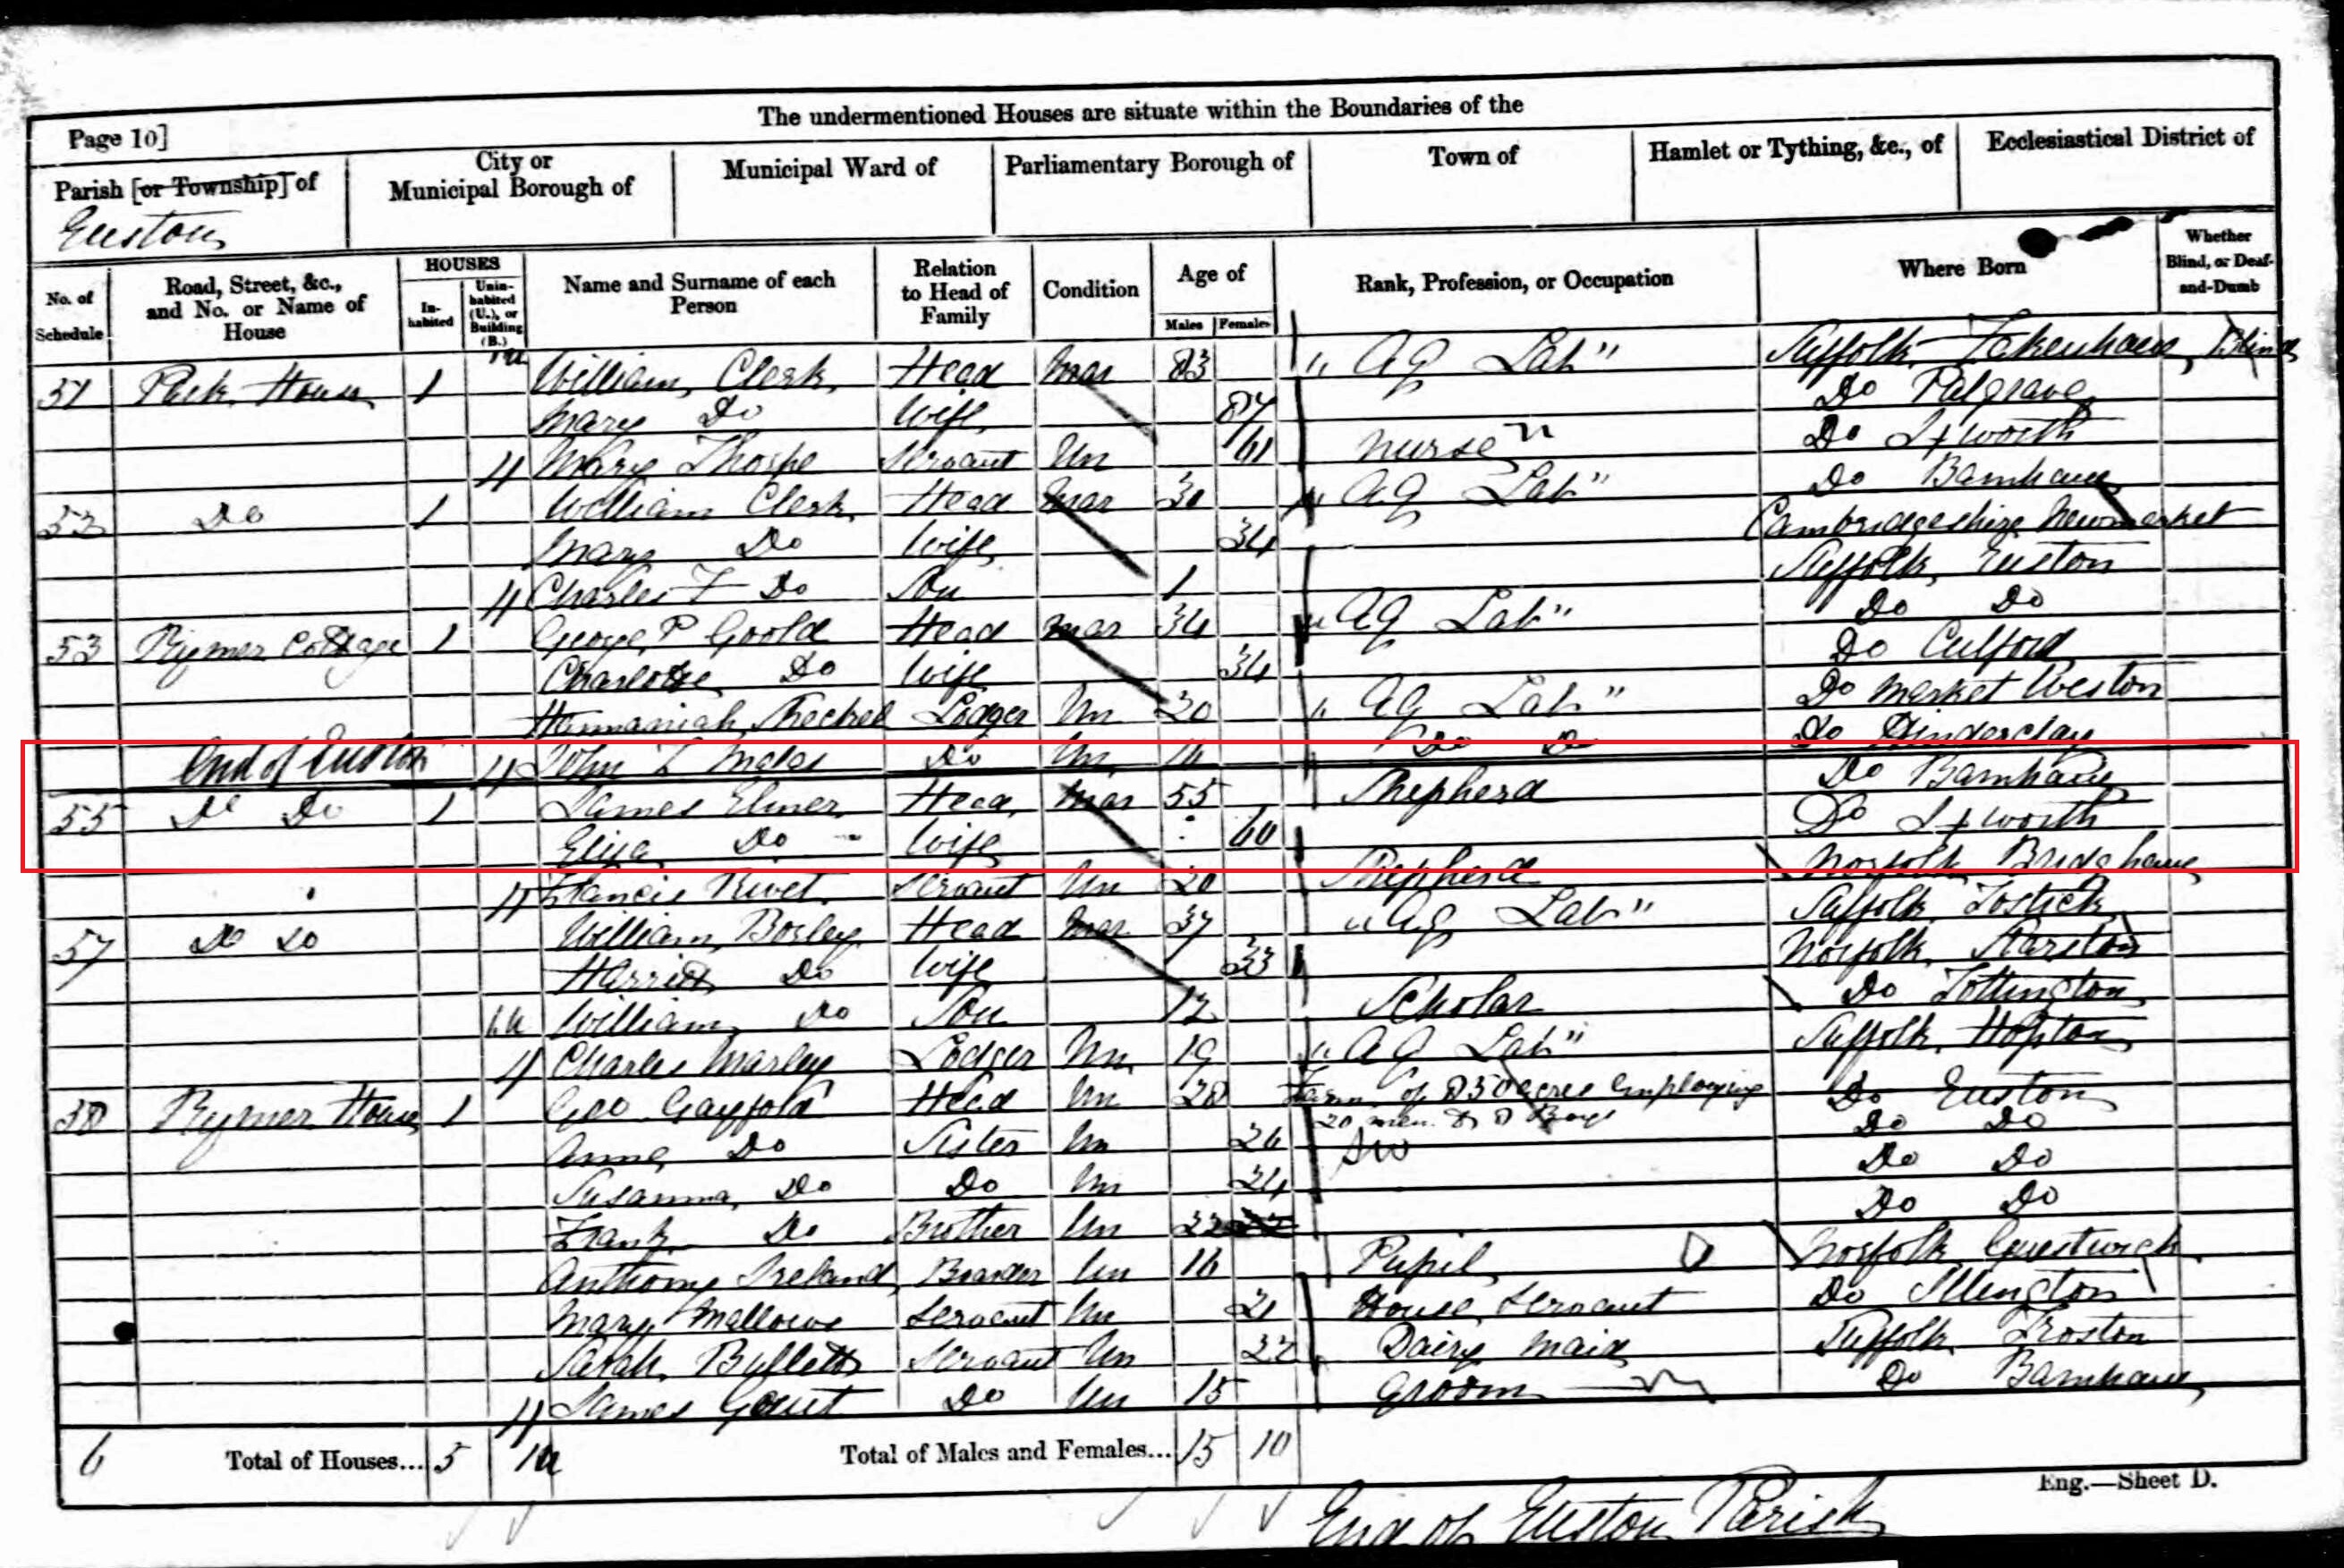 The undermentioned Houses are situate within the Boundaries of the
Page 10]
Parish [or Township] of
City or Municipal Borough of
Municipal Ward of
Parliamentary Borough of
Town of
Hamlet or Tything, &c., of
Ecclesiastical District of
Euston
No. of Schedule
Road, Street, &c., and No. or Name of House
HOUSES
In-habited
Unin-habited (U.), or Building (B.)
Name and Surname of each Person
Relation to Head of Family
Condition
Age of
Males
Females
Rank, Profession, or Occupation
Where Born
Whether Blind, or Deaf-and-Dumb
51 Park House 1 William Clerk Head Mar 83 " Ag Lab " Suffolk Fakenham Blind
Mary Do Wife 87 Do Palgrave
4 Mary Thorpe Servant Un 61 Nurse Do Ixworth
52 Do 1 William Clerk Head Mar 30 " Ag Lab " Do Barnham
Mary Do Wife 34 Cambridgeshire Newmarket
4 Charles F Do Son 1 Suffolk Euston
53 Rymer Cottage 1 George P Goold Head Mar 34 " Ag Lab " Do Do
Charlotte Do Wife 34 Do Culford
Hannaniah Lodger Un 20 " Ag Lab " Do Market Weston
End of Euston 4 John Do Un 16 Do Do Do Hinderclay
55 Do Do 1 James Elmer Head Mar 55 Shepherd Do Barnham
Eliza Do Wife 60 Do Ixworth
4 Francis Rivet Servant Un 20 Shepherd Norfolk Bridgham
57 Do Do William Bosley Head Mar 37 " Ag Lab " Suffolk Tostick
Harriet Do Wife 33 Norfolk Starston
William Do Son 12 Scholar Do Tottington
4 Charles Marley Lodger Un 19 " Ag Lab " Suffolk Hopton
58 Rymer House 1 Geo Gayford Head Un 28 Farm of 850 acres Employing 20 men & 8 Boys Do Euston
Anna Do Sister Un 26 Do Do
Susanna Do Do Un 24 Do Do
Frank Do Brother Un 22 Do Do
Anthony Ireland Boarder Un 16 Pupil Norfolk Guestwick
Mary Mallows Servant Un 21 House Servant Do Illington
Sarah Bullett Servant Un 22 Dairy Maid Suffolk Troston
4 James Gaut Do Un 15 Groom Do Barnham
6 Total of Houses... 5 Total of Males and Females... 15 10
Eng.—Sheet D.
End of Euston Parish